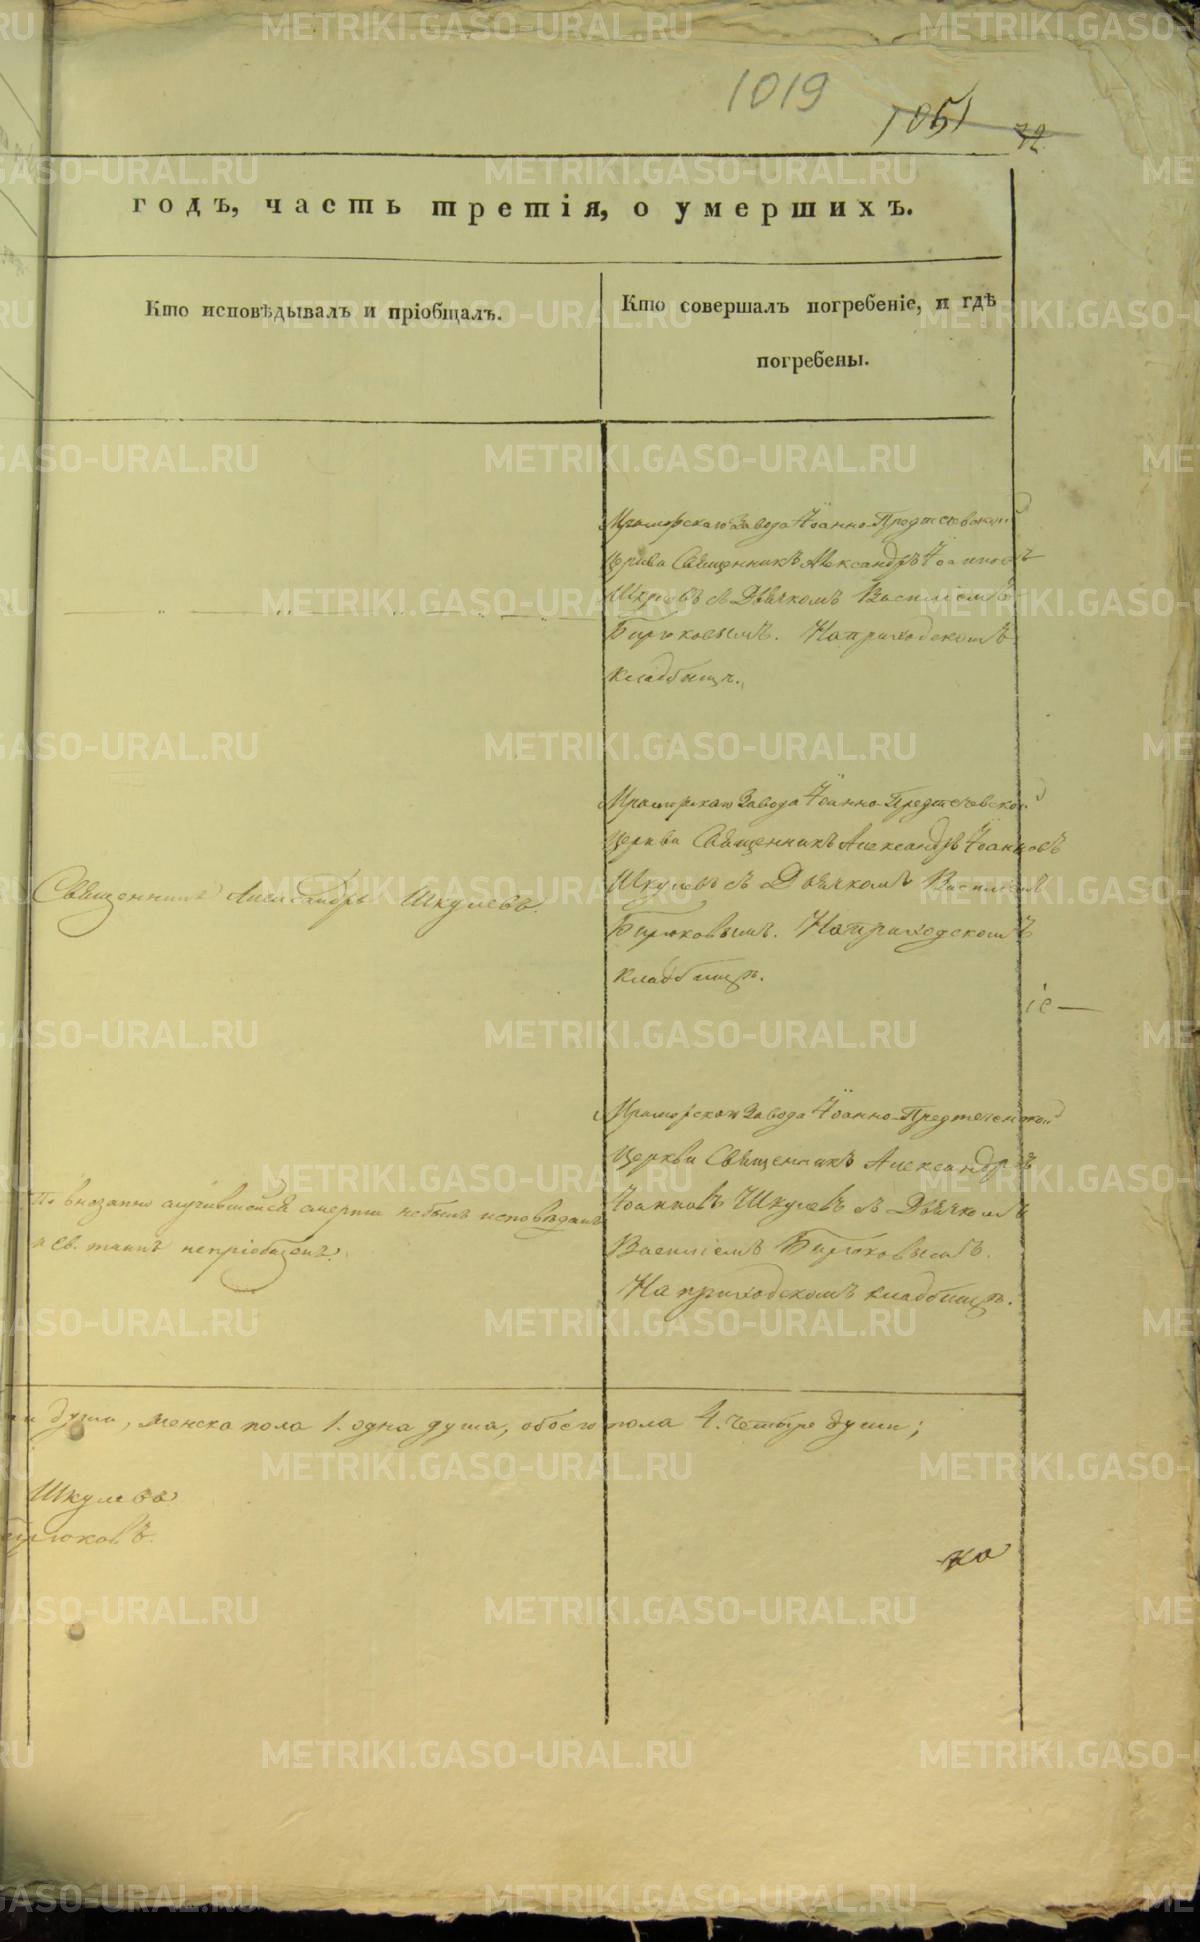 1019
1051
72.
годъ, часть третія, о умершихъ.
Кто исповѣдывалъ и пріобщалъ.
Кто совершалъ погребеніе, и гдѣ
погребены.
Мраморскаго Завода Іоанно-Предтечевской
Церкви Священникъ Александръ Іоанновъ
Шкулевъ съ Дьячкомъ Василіемъ
Бирюковымъ. На приходскомъ
кладбищѣ.
Священникъ Александръ Шкулевъ.
Мраморскаго Завода Іоанно-Предтечевской
Церкви Священникъ Александръ Іоанновъ
Шкулевъ съ Дьячкомъ Василіемъ
Бирюковымъ. На приходскомъ
кладбищѣ.
іе —
По внезапно случившейся смерти не былъ исповѣданъ
и Св. таинъ не пріобщенъ.
Мраморскаго Завода Іоанно-Предтеченской
Церкви Священникъ Александръ
Іоанновъ Шкулевъ съ Дьячкомъ
Василіемъ Бирюковымъ.
На приходскомъ кладбищѣ.
и души, женска пола 1. одна душа, обоего пола 4. четыре души;
Шкулевъ
Бирюковъ.
ко